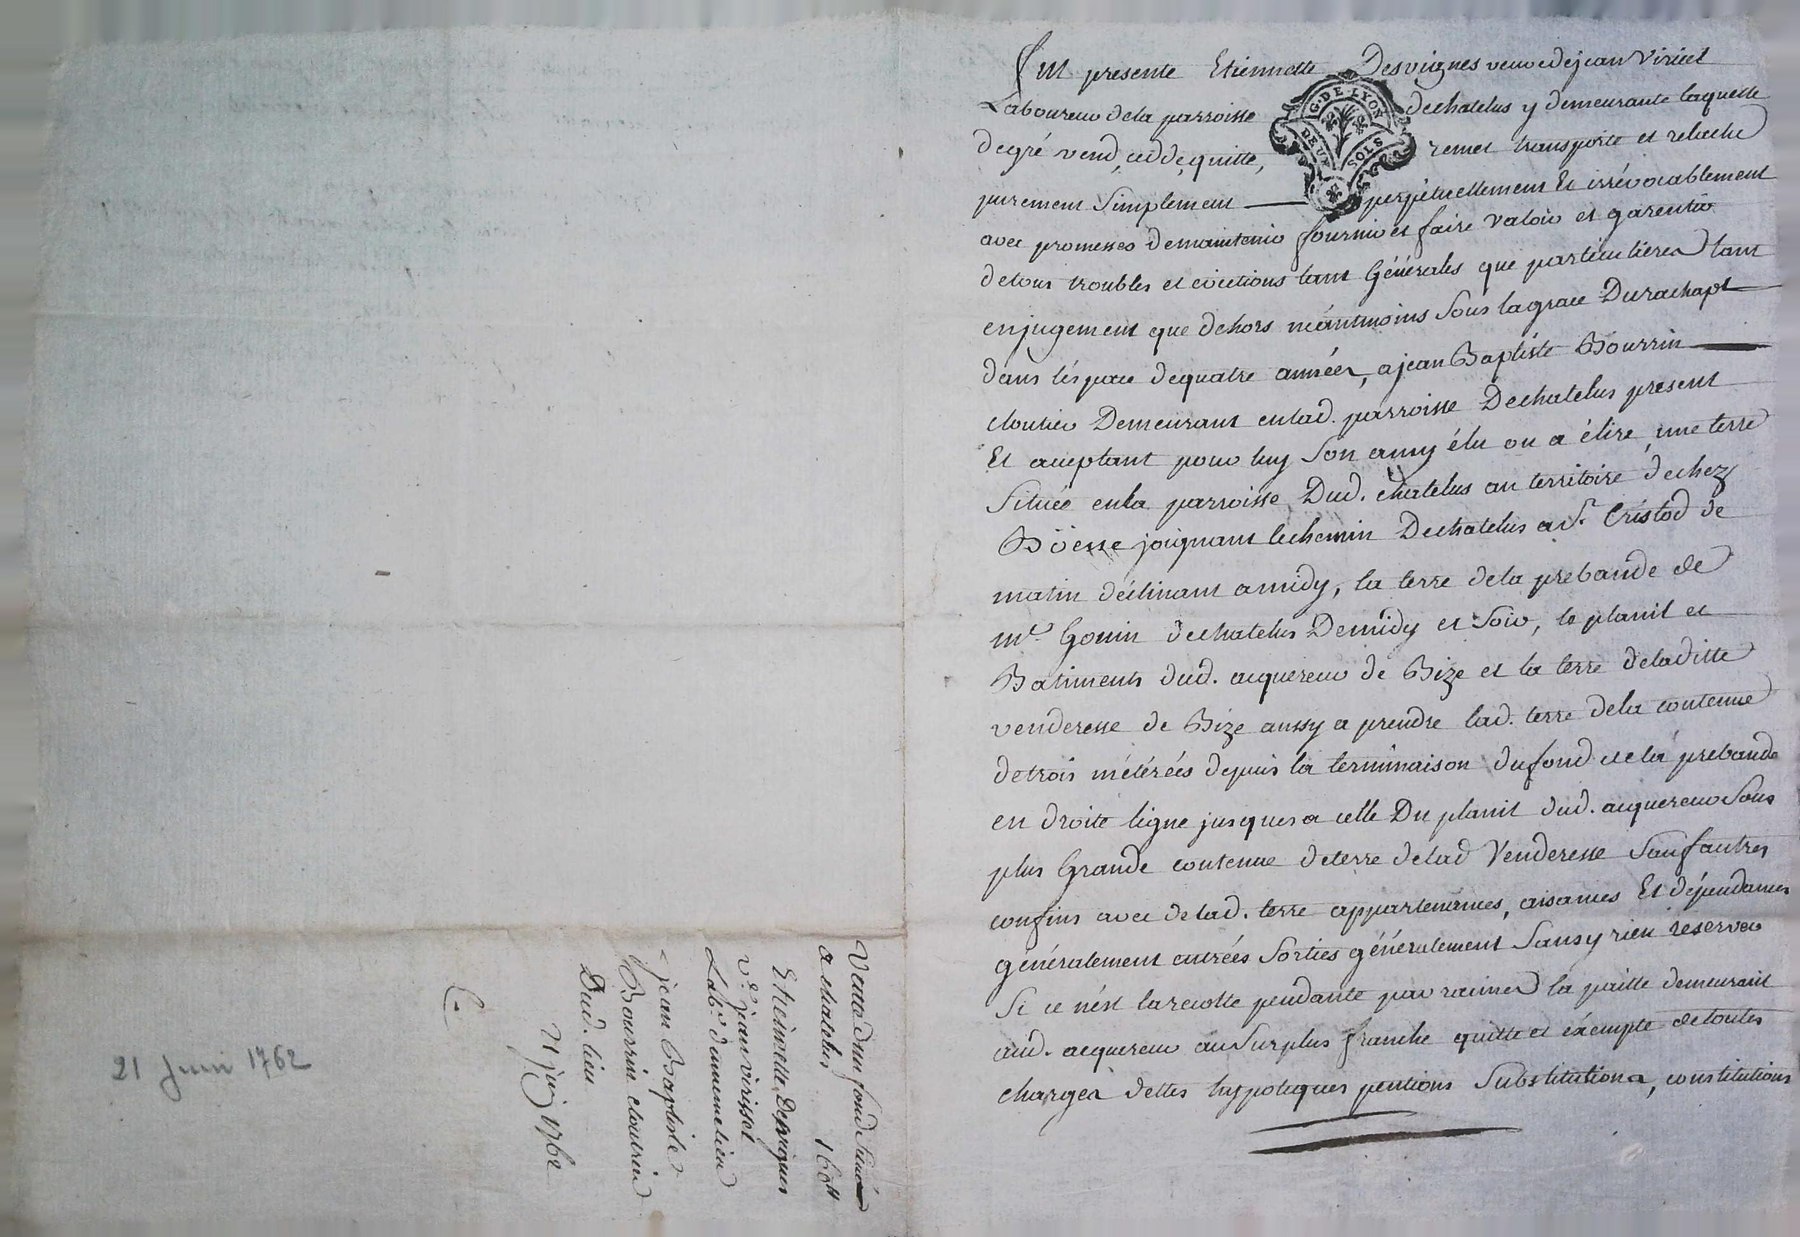 Fut presente Etiennette Desvignes veuve de jean Viricel
Laboureur dela parroisse dechatelus y demeurante laquelle
G. DE. LYON
DEUX SOLS
degré vend, cedde, quitte, remet transporte et relache
purement Simplement perpétuellement Et irrévocablement
avec promesses demaintenir fournir et faire valoir et garentir
detous troubles et evictions tant Générales que particulieres tant
enjugement que dehors néantmoins Sous lagrace Durachapt
dans léspace dequatre années, ajean Baptiste Bourrin
cloutier Demeurant enlad. parroisse Dechatelus present
Et acceptant pour luy Son amy élu ou a élire, une terre
Située enla parroisse Dud. chatelus au territoire dechez
Böesse joignant lechemin Dechatelus a St. Cristod de
matin déclinant amidy, la terre dela prebande de
mre. Gonin dechatelus Demidy et Soir, le planil et
Batiments dud. acquereur de Bize et la terre deladitte
venderesse de Bize aussy a prendre lad. terre dela contenue
detrois métérées depuis la terminaison dufond dela prebande
en droite ligne jusques a celle Du planil dud. acquereur Sous
plus Grande contenue deterre delad Venderesse Sauf autres
confins avec delad. terre appartenances, aisances Et dépendances
généralement entrées Sorties généralement Sansy rien reserver
Si ce nést larecolte pendante par racines la paille demeurant
aud. acquereur auSurplus franche quitte et éxempte detoutes
charges dettes hypoteques pentions Substitutions, constitutions
Vente dun fond Situé
a chatelus 160ll
Etiennette Desvignes
ve. jean viricel
Labr. dumeme lieu
a jean Baptiste
Bourrin cloutrier
Dud. lieu
21 juin 1762
21 Juin 1762